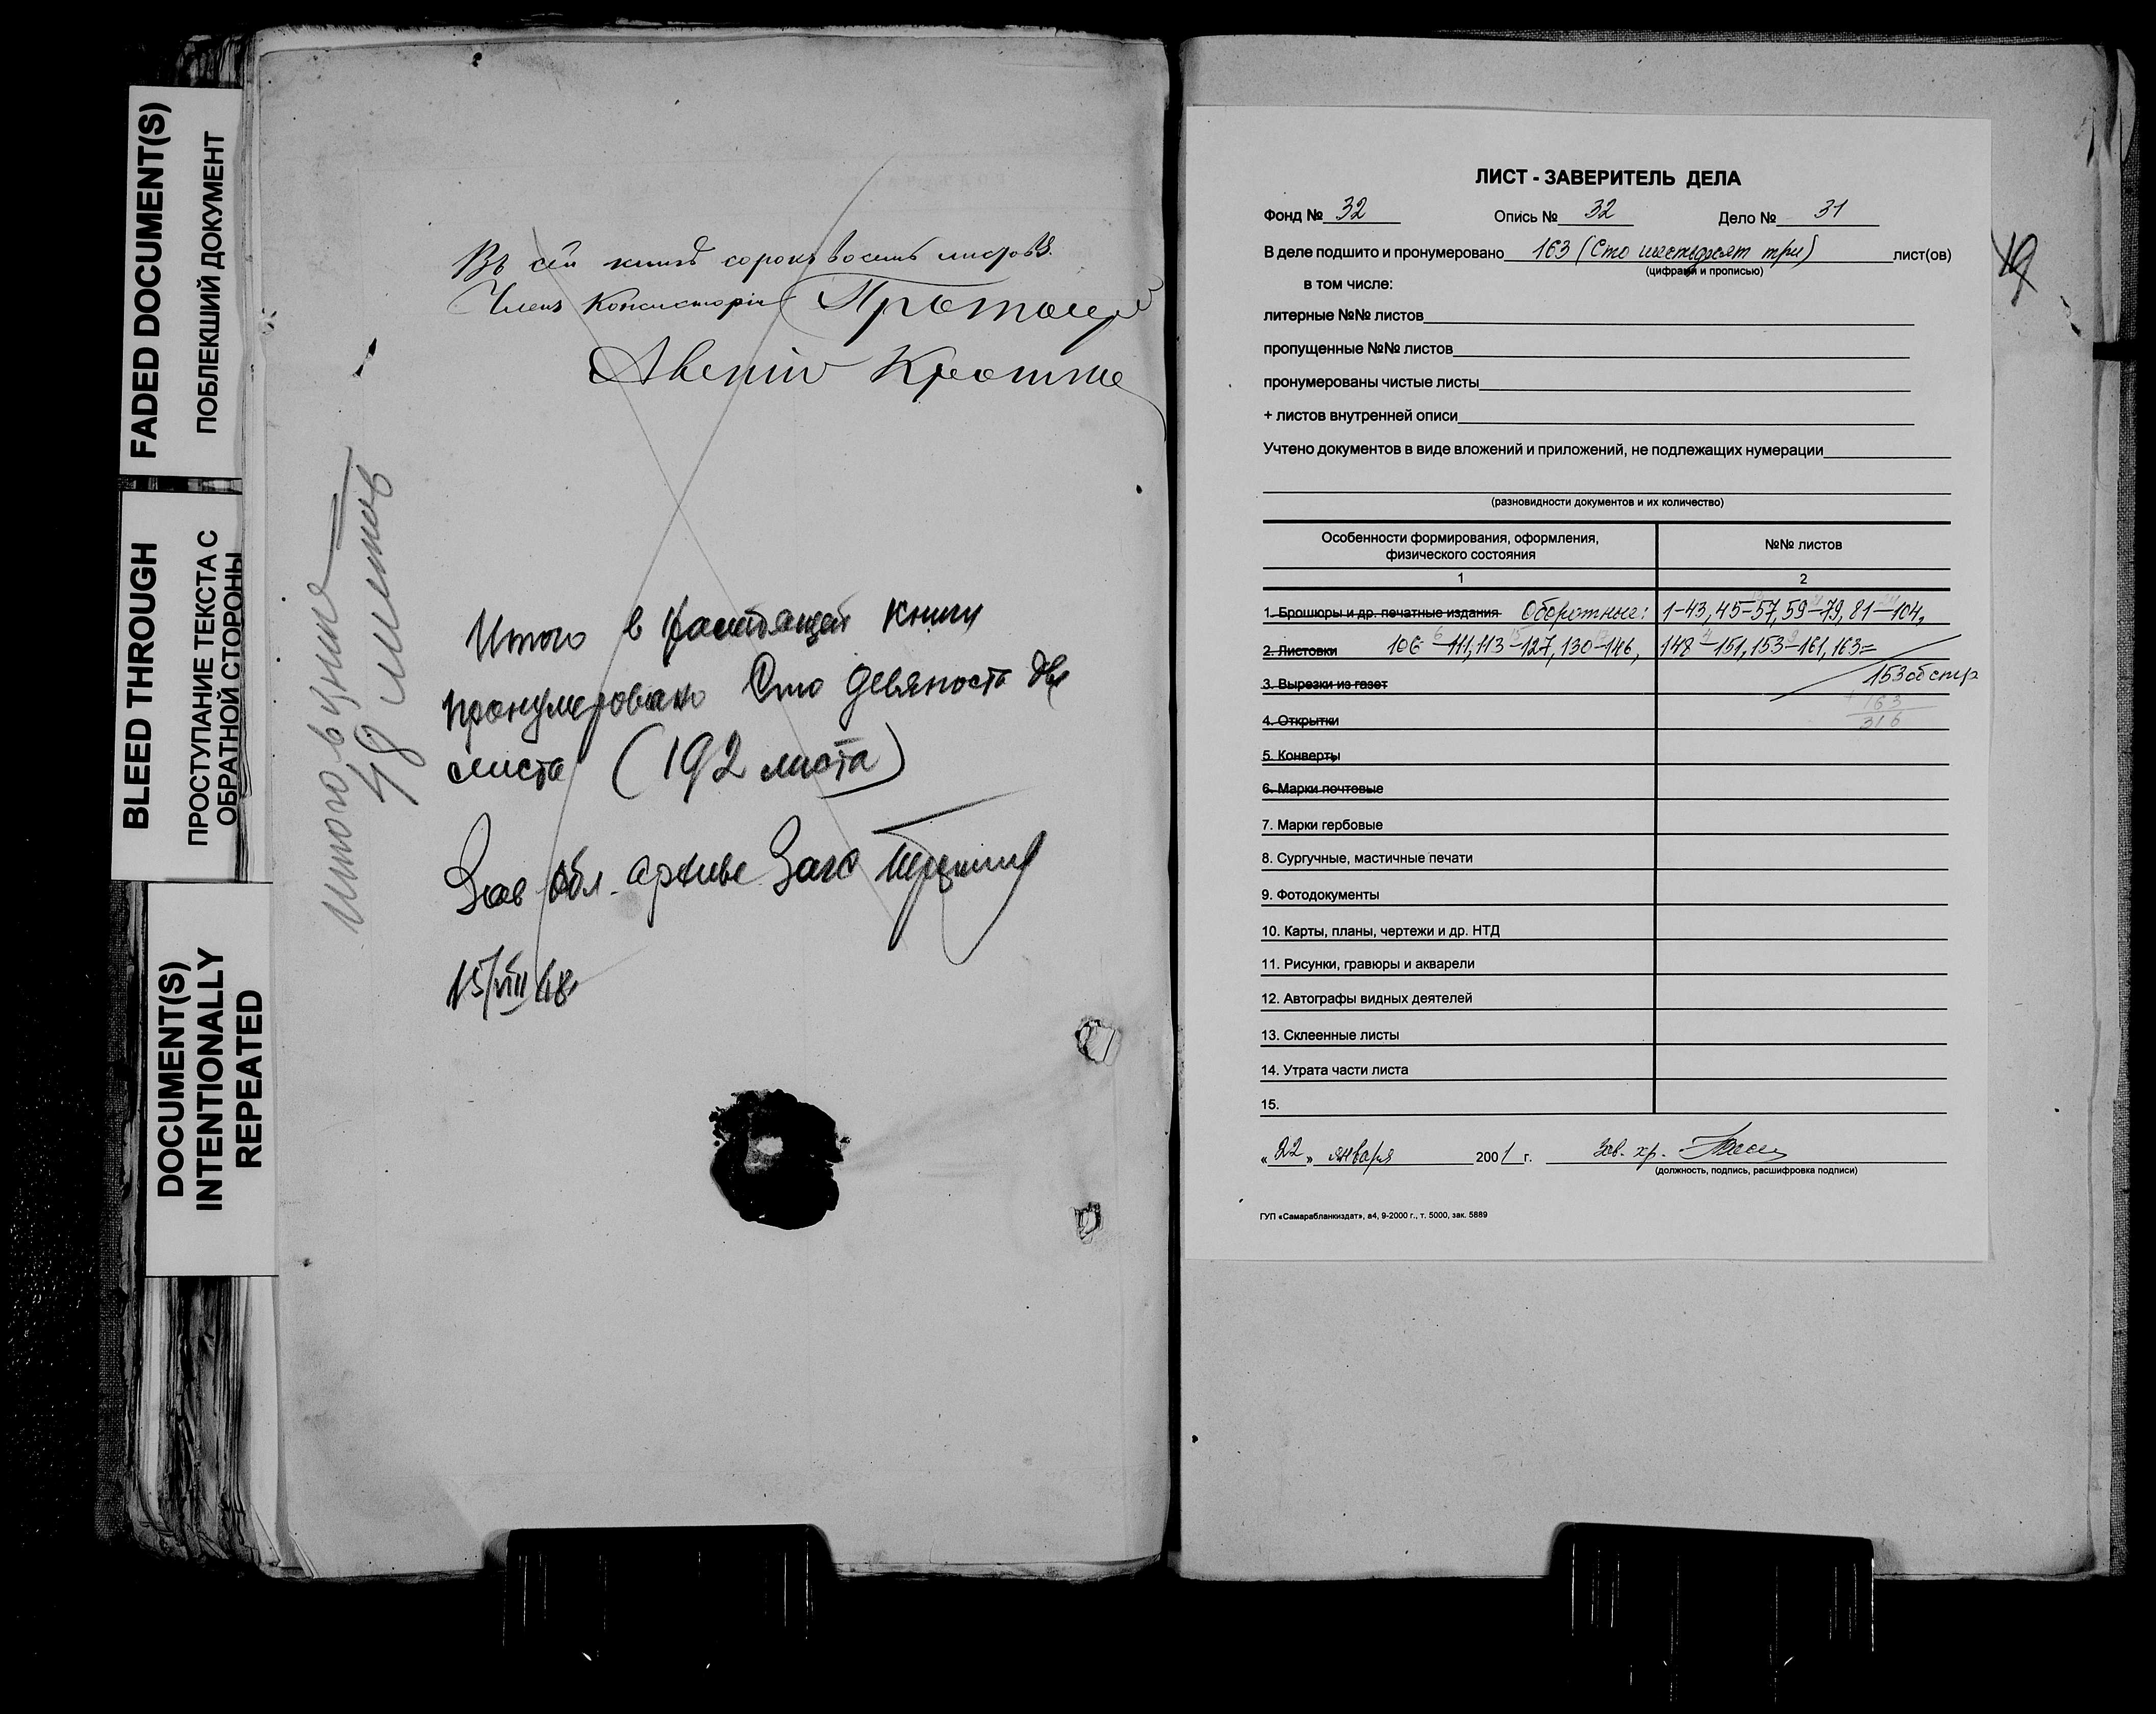 FADED DOCUMENT(S)
ПОБЛЕКШИЙ ДОКУМЕНТ
BLEED THROUGH
ПРОСТУПАНИЕ ТЕКСТА С
ОБРАТНОЙ СТОРОНЫ
DOCUMENT(S)
INTENTIONALLY
REPEATED
Въ сей книгѣ сорокъ восемь листовъ.
Членъ Консисторіи Протоіерей
Итого в книге
48 листов
Итого в настоящей книги
пронумеровано Сто девяноста два
листа (192 листа)
Зав обл. архиве Загс
15/VIII 48.
ЛИСТ - ЗАВЕРИТЕЛЬ ДЕЛА
Фонд № 32 Опись № 32 Дело № 31
В деле подшито и пронумеровано 163 (Сто шестьдесят три) лист(ов)
(цифрами и прописью)
в том числе:
литерные №№ листов
пропущенные №№ листов
пронумерованы чистые листы
+ листов внутренней описи
Учтено документов в виде вложений и приложений, не подлежащих нумерации
(разновидности документов и их количество)
Особенности формирования, оформления, №№ листов
физического состояния
1 2
1. Брошюры и др. печатные издания Оборотные: 1-43, 45-57, 59-79, 81-104,
2. Листовки 106-111, 113-127, 130-146, 148-151, 153-161, 163=
3. Вырезки из газет 153 об стр
+ 163
4. Открытки 316
5. Конверты
6. Марки почтовые
7. Марки гербовые
8. Сургучные, мастичные печати
9. Фотодокументы
10. Карты, планы, чертежи и др. НТД
11. Рисунки, гравюры и акварели
12. Автографы видных деятелей
13. Склеенные листы
14. Утрата части листа
15.
«22» января 2001 г. Зав. хр.
(должность, подпись, расшифровка подписи)
ГУП «Самарабланкиздат», а4, 9-2000 г., т. 5000, зак. 5889